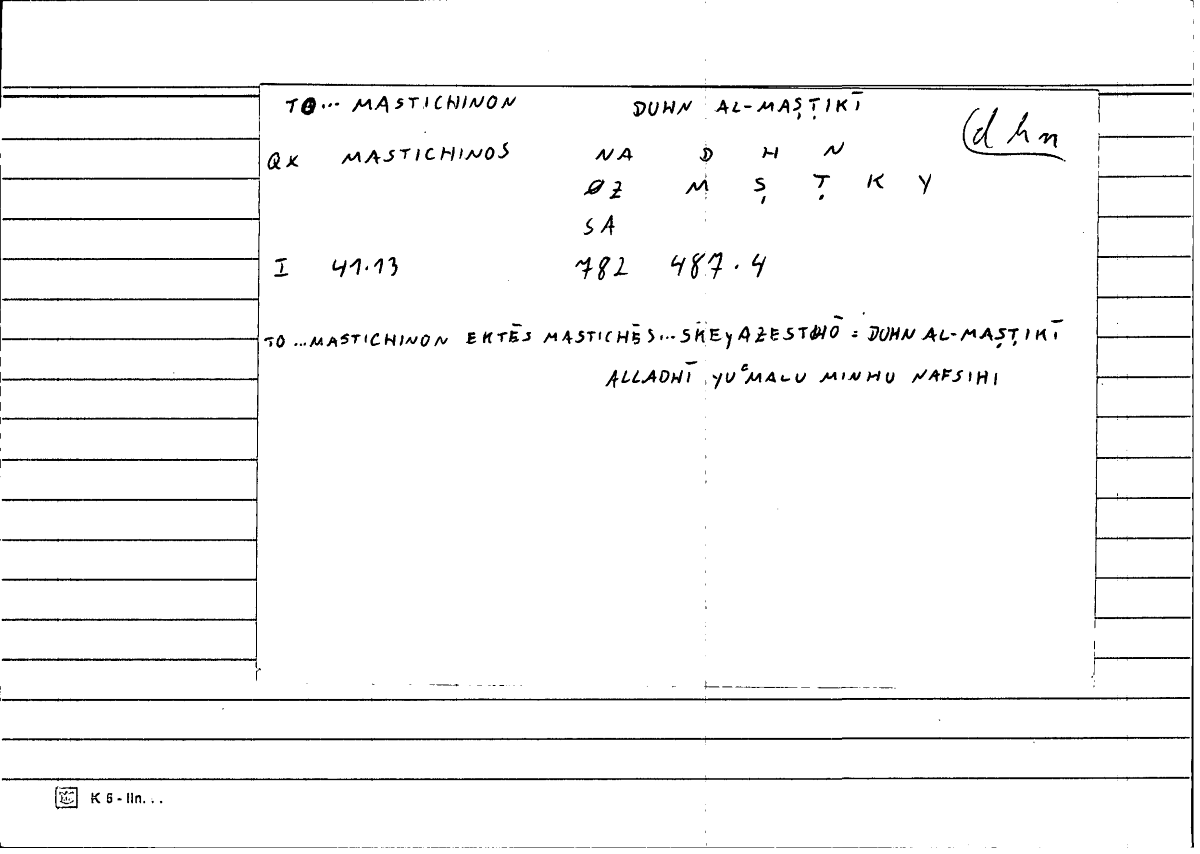 TO... MASTICHINON DUHN AL-MAṢṬIKĪ
(d h n
QX MASTICHINOS NA D H N
ØZ M Ṣ Ṭ K Y
SA
I 41.13 782 487.4
TO...MASTICHINON EKTĒS MASTICHĒS...SKEyAZESTHŌ = DUHN AL-MAṢṬIKĪ
ALLADHĪ YUᶜMALU MINHU NAFSIHI
K 6 - IIn...